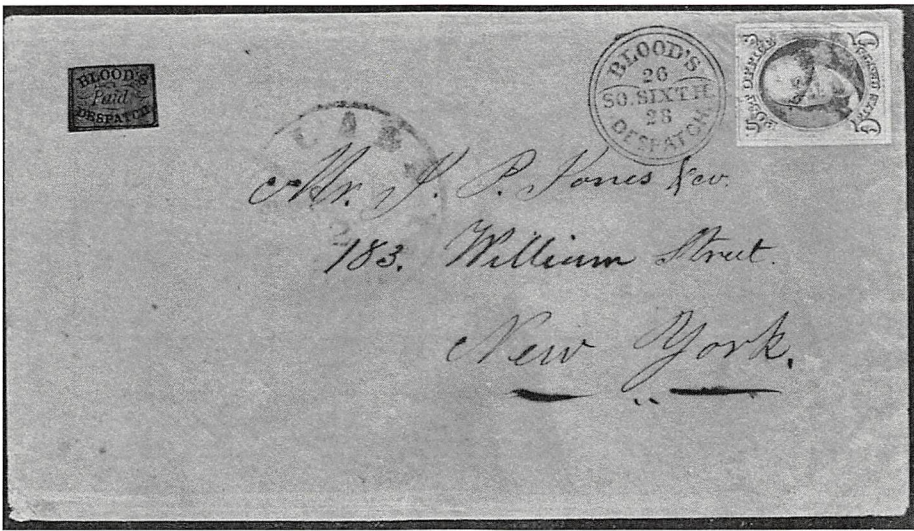 BLOOD'S
Paid
DESPATCH
BLOOD'S
26
SO. SIXTH
28
DESPATCH
POST OFFICE
5 5
Mr. J. P. Jones & co.
183. William Street.
New York.